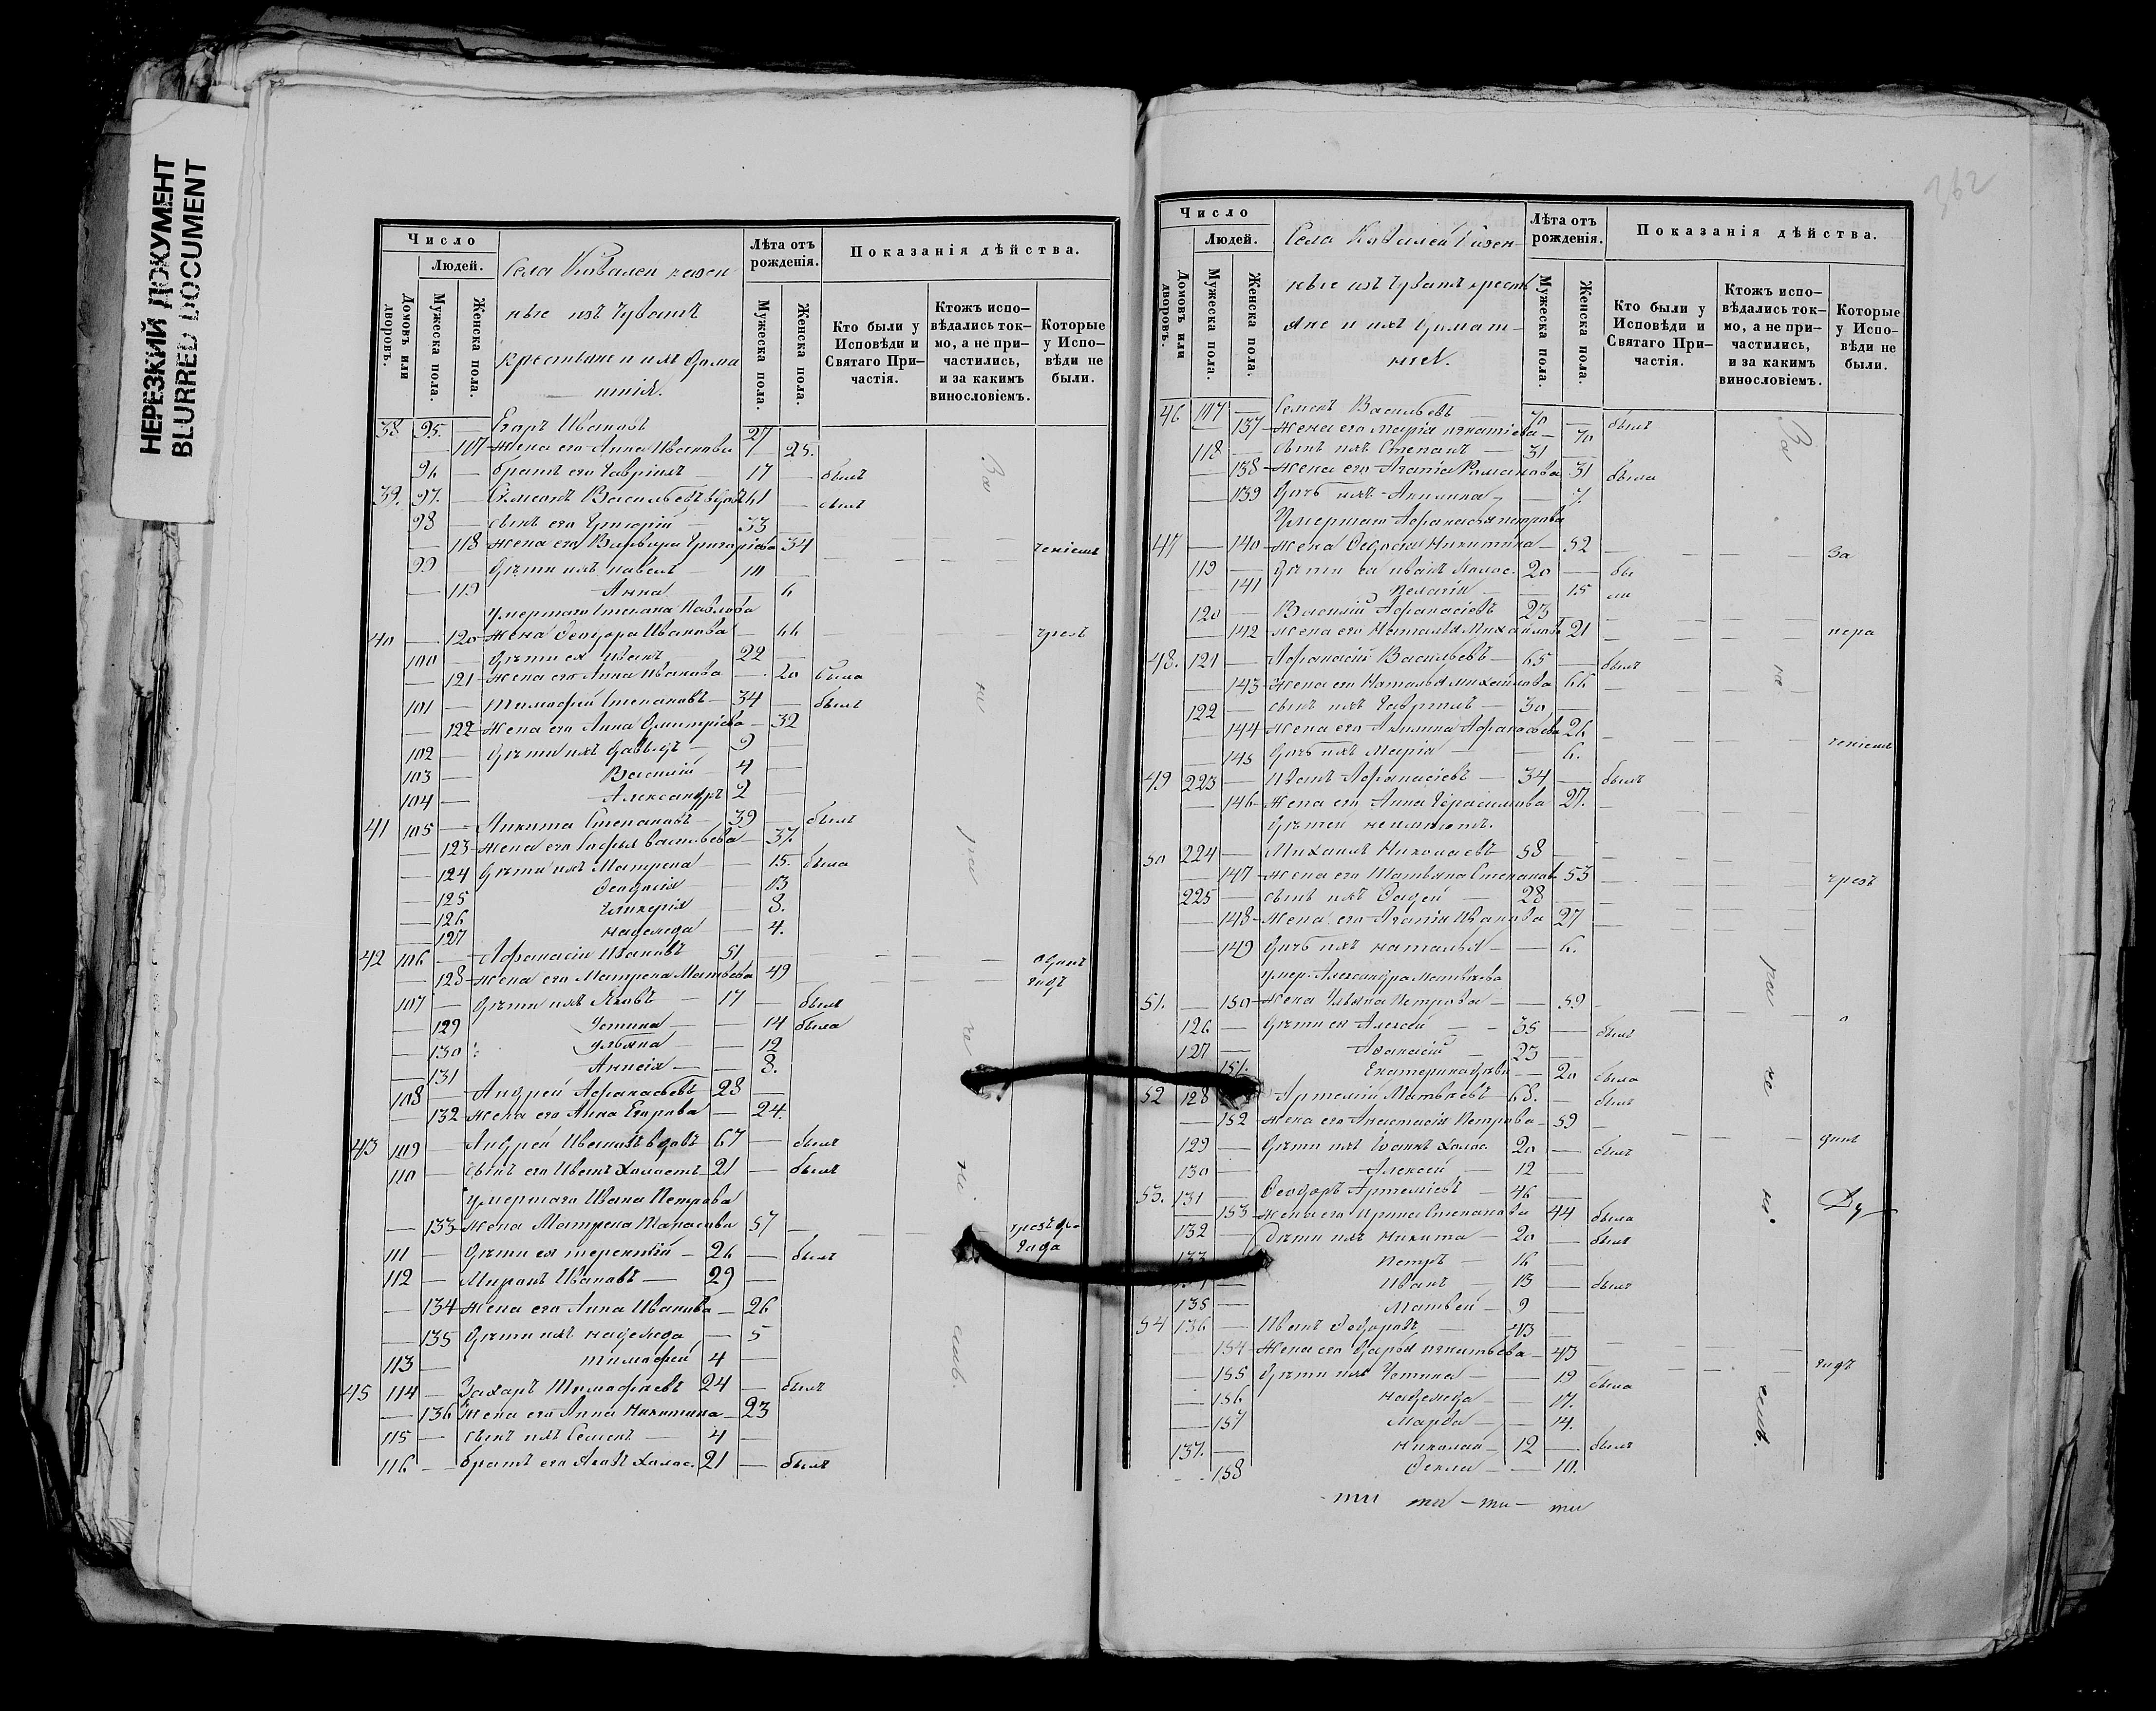 НЕРЕЗКИЙ ДОКУМЕНТ
BLURRED DOCUMENT
Число
Людей.
Домовъ или дворовъ.
Мужеска пола.
Женска пола.
Села Ковалей казен
ные изъ Чувашъ
крестьяне и ихъ дома
шнія.
Лѣта отъ рожденія.
Мужеска пола.
Женска пола.
Показанія дѣйства.
Кто были у Исповѣди и Святаго Причастія.
Ктожъ испо–вѣдались ток–мо, а не при–частились, и за какимъ винословіемъ.
Которые у Испо–вѣди не были.
38 95. — Егоръ Ивановъ 27
— 107 Жена его Анна Иванова — 25.
96 — братъ его Гавріилъ — 17 — былъ
39. 97. — Васильевъ вдовъ 61 — былъ
98 — сынъ его Григорій — 33 —
— 118 жена его Варвара Григоріева 34
99 — дѣти ихъ Павелъ —
— 119 Анна — 6
умершаго Степана Павлова
40 — 120 жена Ѳеодора Иванова — 66 — чрезъ
100 — дѣти ея Иванъ 22 —
— 121 жена его Анна Иванова — 20 была
101 — Тимофей Степановъ — 34 — былъ
— 122 жена его Анна Дмитріева — 32
102 — дѣти ихъ Давыдъ — 9 —
103 — Василій — 4 —
104 — Александръ 2 —
41 105 — Никита Степановъ — 39 — былъ
— 123 жена его Софья Васильева — 37.
— 124 дѣти ихъ Матрена — 15. была
— 125 Ѳеодосія — 13
— 126 Гликерія — 8.
— 127 надежда — 4.
42 106 — Афанасій Ивановъ 51
— 128 жена его Матрена Матвѣева 49
107 — дѣти ихъ Яковъ — 17 — былъ
— 129 Устина — 14 была
— 130 Ульяна — 12
— 131 Анисія — 8.
108 — Андрей Афанасьевъ 28 —
— 132 жена его Анна Егорова — 24.
43 109 — Андрей Ивановъ вдовъ 67 — былъ
110 — сынъ его Иванъ Холостъ 21 — былъ
умершаго Ивана Петрова
— 133 жена Матрена Тарасова 57 —
111 — дѣти ея терентій — 26 — былъ
112 — Миронъ Ивановъ — 29 —
— 134 жена его Анна Иванова — 26
— 135 дѣти ихъ надежда — 5
113 — тимофей 4 —
45 114 — Захаръ Тимофѣевъ 24 — былъ
— 136 жена его Анна Никитина — 23
115 — сынъ ихъ Семенъ — 4 —
116 — братъ его Яковъ холос. 21 — былъ
362
Число
Людей.
Домовъ или дворовъ.
Мужеска пола.
Женска пола.
Села Ковалей Казен–
ные изъ Чувашъ кресть
яне и ихъ домаш–
ніе.
Лѣта отъ рожденія.
Мужеска пола.
Женска пола.
Показанія дѣйства.
Кто были у Исповѣди и Святаго При–частія.
Ктожъ испо–вѣдались ток–мо, а не при–частились, и за какимъ винословіемъ.
Которые у Испо–вѣди не были.
46 117 — Семенъ Васильевъ — 70 — былъ
— 137 жена его Марія Игнатіева — 70
118 — сынъ ихъ Степанъ — 31 —
— 138 жена его Агапія Романова 31 была
— 139 дочь ихъ Акилина — 7.
Умершаго Афанасья петрова
47 — 140 жена Ѳедосія Никитина — 52 — за
119 — дѣти ея иванъ холос. 20 — бы
— 141 Пелагія — 15 ли
120 — Василій Афанасіевъ 23 —
— 142 жена его Наталья Михайлова 21
48. 121 — Афанасій Васильевъ — 65 — былъ
— 143 жена его Наталья михайлова 66
122 — сынъ ихъ Гавріилъ — 30 —
— 144 жена его Акилина Афанасьева 26
— 145 дочь ихъ Марія — 6.
49 223 — Иванъ Афанасіевъ — 34 — былъ
— 146 жена его Анна Герасимова 27.
дѣтей неимѣютъ.
50 224 — Михаилъ Николаевъ 58
— 147 жена его Татьяна Степанов. 53 — чрезъ
225 — сынъ ихъ Фадей — 28
— 148 жена его Агапія Иванова 27
— 149 дочь ихъ наталья — 6.
умер. Александра Матвѣева
51. — 150 жена Ульяна Петрова — 59
126 — дѣти ея Алексѣй — 35 — былъ
127 — Афанасій — 23 —
151. Екатерина дѣва — 20 была
52 128 Артемій Матвѣевъ 68. — былъ
— 152 жена его Анастасія Петрова — 59
129 — дѣти ихъ Іоаннъ холос 20 — былъ
130 — Алексѣй — 12 —
53. 131 — Ѳеодоръ Артеміевъ — 46 —
— 153 жена его Ирина Степанова 44 была
132 — дѣти ихъ Никита — 20 — былъ
133 — Петръ — 16 —
— Иванъ — 13 — былъ
135 — Матвѣй — 9 —
54 136 — Иванъ Ѳедоровъ — 43 —
— 154 жена его Дарья игнатьева — 43
— 155 дѣти ихъ Устина — 19 была
— 156 надежда — 17.
— 157 Марфа — 14.
137. — Николай — 12 — былъ
158 Ѳекла — 10.